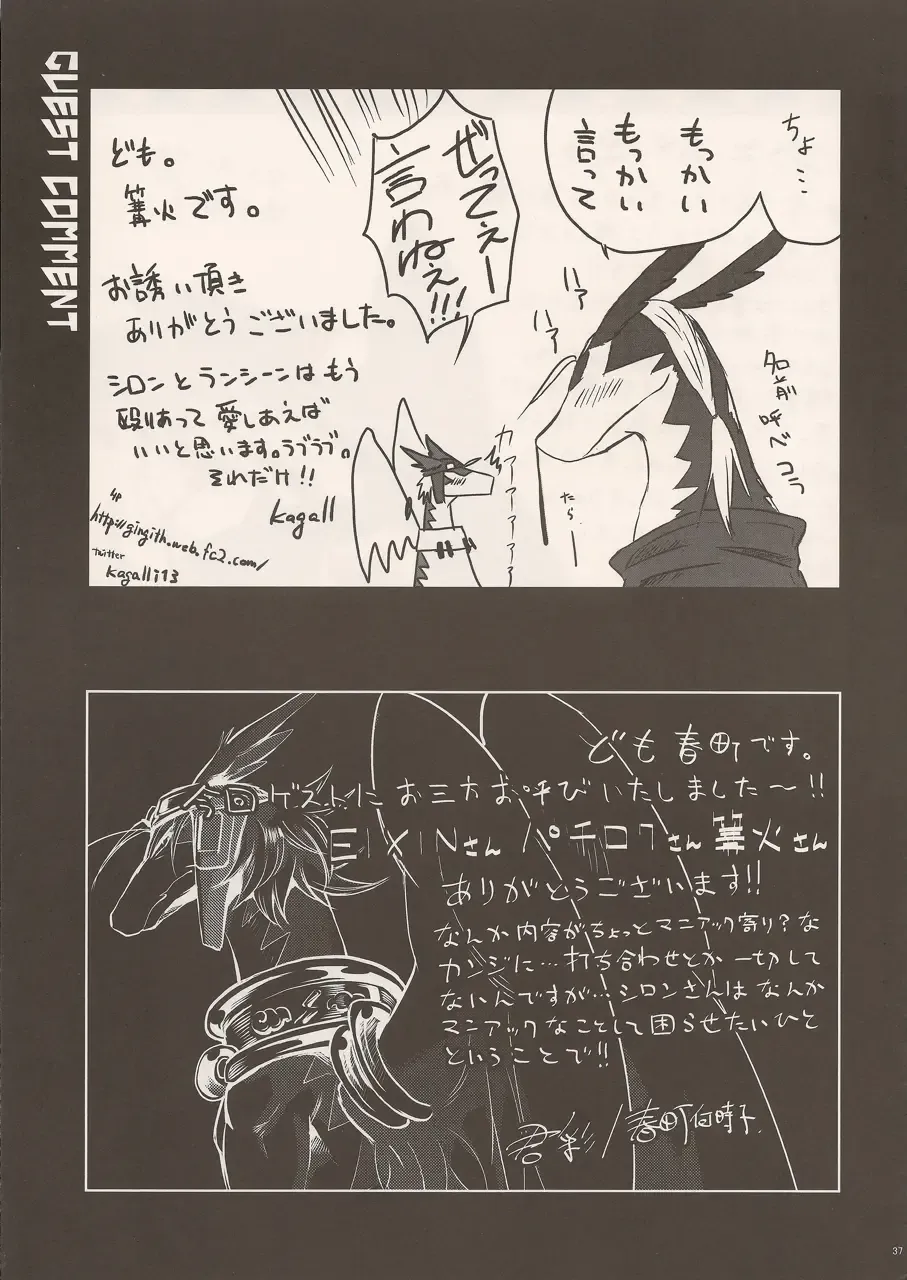 GUEST COMMENT
ちょ…
もっかい
もっかい
言って
ぜってぇー
言わねぇ!!!
ハァ
ハァ
名前呼べコラ
カァァァァァ
たら
ども。
篝火です。
お誘い頂き
ありがとうございました。
シロンとランシーンはもう
殴りあって愛しあえば
いいと思います。ラブラブ。
それだけ!!
kagall
HP
http://gingith.web.fc2.com/
twitter
kagalli13
ども春町です。
ゲストにお三方お呼びいたしました〜!!
EIXINさん パチロクさん 篝火さん
ありがとうございます!!
なんか内容がちょっとマニアック寄り?な
カンジに…打ち合わせとか一切して
ないんですが…シロンさんはなんか
マニアックなことして困らせたいひと
ということで!!
君彩/春町
37